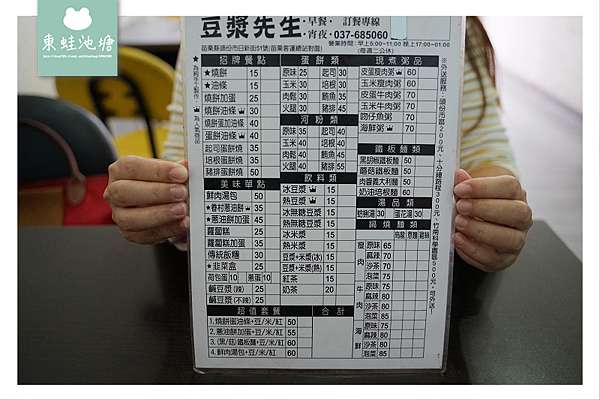 東蛙池塘
豆漿先生
・早餐・
・宵夜・
訂餐專線
037-685060
苗栗縣頭份市日新街51號(苗栗客運總站對面)
營業時間：早上5:00~11:00 晚上17:00~01:00
(每週二公休)
招牌餐點
★燒餅 15
★油條 15
燒餅加蛋 25
燒餅油條 30
燒餅蛋加油條 40
燒餅蛋油條 30
起司蛋燒餅 35
培根蛋燒餅 35
豬排蛋燒餅 50
美味單點
鮮肉湯包 50
★眷村蔥油餅 35
★蔥油餅加蛋 45
蘿蔔糕 25
蘿蔔糕加蛋 35
傳統飯糰 30
★韭菜盒 25
荷包蛋 10 蔥蛋 10
鹹豆漿(辣) 25
鹹豆漿(不辣) 25
超值套餐 合計
1.燒餅蛋油條+豆/米/紅 50
2.蔥油餅加蛋+豆/米/紅 55
3.(黑/菇)鐵板麵+豆/米/紅 60
4.鮮肉湯包+豆/米/紅 60
蛋餅類
原味 25 起司 30
玉米 30 培根 30
肉鬆 30 鮪魚 35
火腿 30 豬排 45
河粉類
原味 35 起司 40
玉米 40 培根 40
肉鬆 40 鮪魚 45
火腿 40 豬排 55
飲料類
冰豆漿 15
熱豆漿 15
冰無糖豆漿 15
熱無糖豆漿 15
冰米漿 15
熱米漿 15
豆漿+米漿(冰) 15
豆漿+米漿(熱) 15
紅茶 15
奶茶 20
現煮粥品
皮蛋瘦肉粥 60
玉米瘦肉粥 60
皮蛋牛肉粥 70
玉米牛肉粥 70
吻仔魚粥 70
海鮮粥 70
鐵板麵類
黑胡椒鐵板麵 50
蘑菇鐵板麵 50
肉醬義大利麵 50
奶油培根麵 60
湯品類
蛤蜊湯 30 蛋花湯 30
鍋燒麵類
瘦肉
原味 65
麻辣 70
沙茶 70
泡菜 75
牛肉
原味 75
麻辣 80
沙茶 80
泡菜 85
海鮮
原味 75
麻辣 80
沙茶 80
泡菜 85